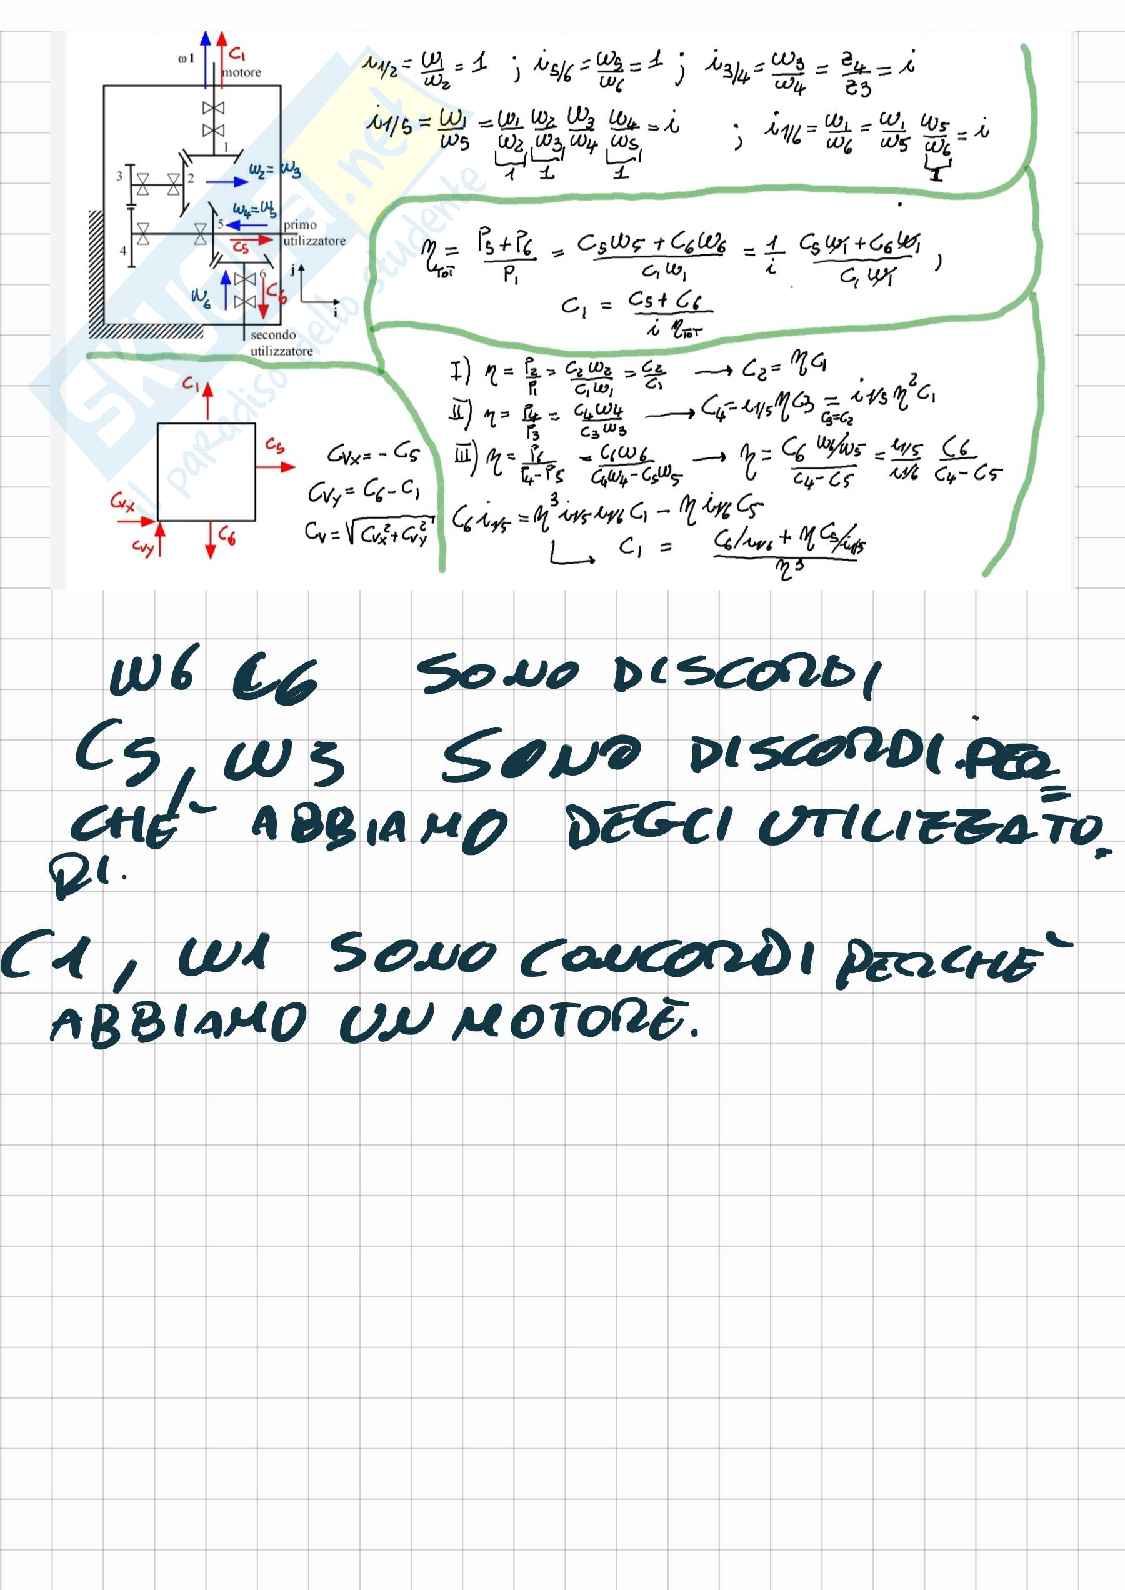 ω1 C₁
motore
1
3
2
ω₂=ω₃
ω₄=ω₅
5
primo
utilizzatore
C₅
4
6
j
i
ω₆
C₆
secondo
utilizzatore
i₁/₂ = ω₁/ω₂ = 1 ; i₅/₆ = ω₅/ω₆ = 1 ; i₃/₄ = ω₃/ω₄ = z₄/z₃ = i
i₁/₅ = ω₁/ω₅ = ω₁/ω₂ ω₂/ω₃ ω₃/ω₄ ω₄/ω₅ = i ; i₁/₆ = ω₁/ω₆ = ω₁/ω₅ ω₅/ω₆ = i
1 1 1 1
η_TOT = (P₅+P₆)/P₁ = (C₅ω₅+C₆ω₆)/(C₁ω₁) = 1/i (C₅ω₁+C₆ω₁)/(C₁ω₁) ,
C₁ = (C₅+C₆)/(i η_TOT)
I) η = P₂/P₁ = C₂ω₂/C₁ω₁ = C₂/C₁ → C₂ = ηC₁
II) η = P₄/P₃ = C₄ω₄/C₃ω₃ → C₄ = i₁/₅ηC₃ = i₁/₅η²C₁
C₃=C₂
III) η = P₆/(P₄-P₅) = C₆ω₆/(C₄ω₄-C₅ω₅) → η = C₆ ω₆/ω₅/(C₄-C₅) = i₁/₅/i₁/₆ C₆/(C₄-C₅)
C₆ i₁/₅ = η³ i₁/₅ i₁/₆ C₁ - η i₁/₆ C₅
→ C₁ = (C₆/i₁/₆ + ηC₅/i₁/₅)/η³
C₁
C₅
Cvx
Cvy
C₆
Cvx = -C₅
Cvy = C₆-C₁
Cv = √(Cvx²+Cvy²)
SKUOLA.net
il paradiso dello studente
W6 C6 SONO DISCORDI
C5, W5 SONO DISCORDI PER=
CHÉ ABBIAMO DEGLI UTILIZZATO=
RI.
C1, W1 SONO CONCORDI PERCHÉ
ABBIAMO UN MOTORE.